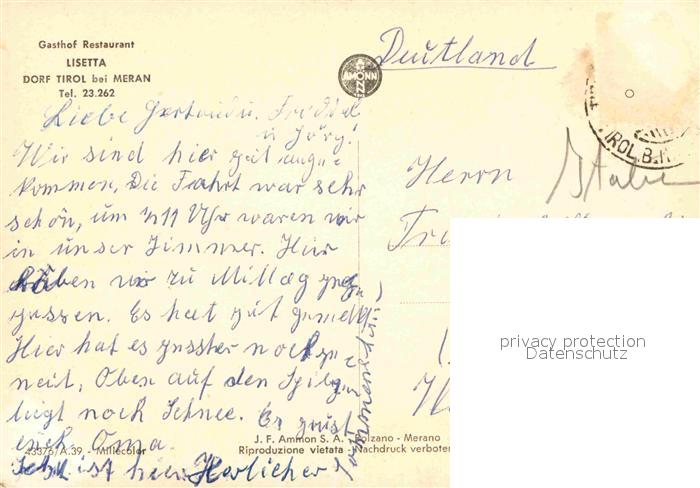 Gasthof Restaurant
LISETTA
DORF TIROL bei MERAN
Tel. 23.262
AMONN
Deutland
TIROL B.
Liebe Gertraud u. Friedel
u Jörg!
Wir sind hier gut ange=
kommen, Die Fahrt war sehr
schön, um 1/2 11 Uhr waren wir
in unser Zimmer. Hier
haben wir zu Mittag gege
gessen. Es hat gut
Hier hat es gesster noch ge=
neit, Oben auf den
liegt noch Schnee. Es grüst
euch Oma.
ist hier Herlicher
Herrn
Italien
privacy protection
Datenschutz
43376/A.39 - Millecolor
J. F. Ammon S. A. Bolzano - Merano
Riproduzione vietata - Nachdruck verboten